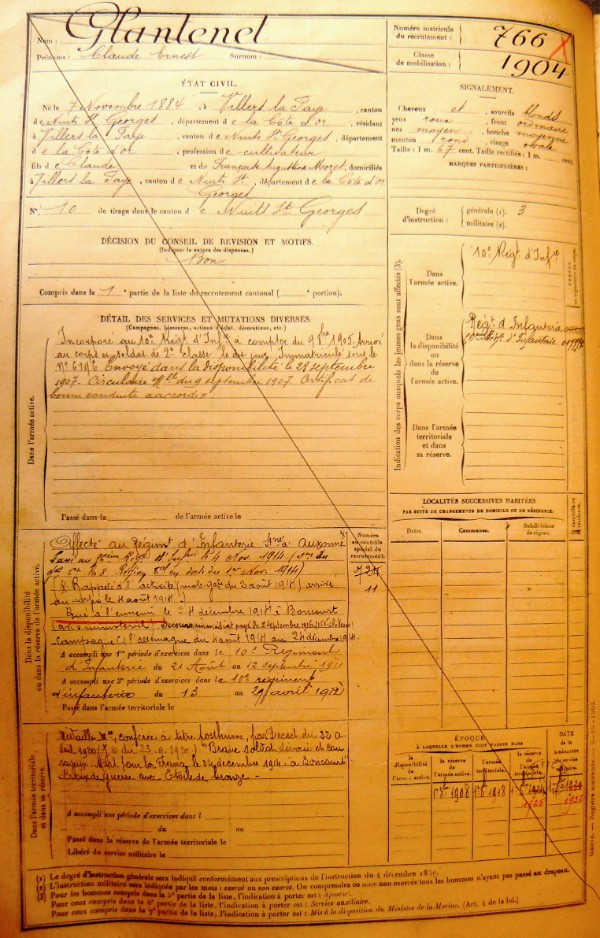 Nom : Glantenet
Prénoms : Claude Ernest Surnom :
Numéro matricule du recrutement : 766
Classe de mobilisation : 1904
ÉTAT CIVIL.
Né le 7 Novembre 1884, à Villers la Faye, canton
de Nuits St Georges, département de la Côte d'Or, résidant
à Villers la Faye, canton de Nuits St Georges, département
de la Côte d'Or, profession de cultivateur
fils de Claude et de Françoise Augustine Morel, domiciliés
à Villers la Faye, canton de Nuits St Georges, département de la Côte d'Or
N° 10 de tirage dans le canton de Nuits St Georges
SIGNALEMENT.
Cheveux et sourcils blonds
yeux roux, front ordinaire
nez moyen, bouche moyenne
menton rond, visage ovale
Taille : 1 m. 67 cent. Taille rectifiée : 1 m. cent.
MARQUES PARTICULIÈRES :
Degré d'instruction : générale (1). 3
militaire (2).
DÉCISION DU CONSEIL DE REVISION ET MOTIFS.
(Indiquer la nature des dispenses.)
Bon
Compris dans la 1e partie de la liste du recrutement cantonal ( e portion).
DÉTAIL DES SERVICES ET MUTATIONS DIVERSES.
(Campagnes, blessures, actions d'éclat, décorations, etc.)
Incorporé au 10e Régt d'Infie à compter du 9 8bre 1905. Arrivé
au corps et soldat de 2e classe le dit jour. Immatriculé sous le
N° 6196. Envoyé dans la disponibilité le 28 septembre
1907. Circulaire Mlle du 9 septembre 1907. Certificat de
bonne conduite accordé.
Dans l'armée active.
Passé dans de l'armée active le
Indication des corps auxquels les jeunes gens sont affectés (3).
Dans l'armée active.
10e Régt d'Infie
Dans la disponibilité ou dans la réserve de l'armée active.
Régt d'Infanterie
Dans l'armée territoriale et dans sa réserve.
LOCALITÉS SUCCESSIVES HABITÉES
PAR SUITE DE CHANGEMENTS DE DOMICILE OU DE RÉSIDENCE.
Dates. Communes. Subdivisions de région.
Dans la disponibilité ou dans la réserve de l'armée active.
Numéro au contrôle spécial du recrutement.
Affecté au Régiment d'Infanterie à Auxonne
(Rappelé à l'activité août 1914) arrivé
au corps le 4 août 1914.
Tué à l'ennemi le 24 décembre 1914 à Boncourt
Campagne C/ l'Allemagne du 4 août 1914 au 24 décembre 1914
A accompli une 1re période d'exercices dans le 10e Régiment
d'Infanterie du 21 Août au 12 septembre 1911
A accompli une 2e période d'exercices dans le 10e régiment
d'infanterie du 13 au 29 avril 1912
Passé dans l'armée territoriale le
Dans l'armée territoriale
Médaille Mre, conférée à titre posthume, par Décret du 22
1920 (J.O. du 23.9.1920) "Brave soldat
Mort pour la France, le 24 décembre 1914 à Boncourt
Croix de guerre avec Etoile de bronze.
A accompli une période d'exercices dans l
du au
Passé dans la réserve de l'armée territoriale le
Libéré du service militaire le
ÉPOQUE
À LAQUELLE L'HOMME DOIT PASSER DANS
la disponibilité de l'armée active. la réserve de l'armée active. l'armée territoriale. la réserve de l'armée territoriale.
DATE DE LA
1908 1918
(1) Le degré d'instruction générale sera indiqué conformément aux prescriptions de l'instruction du
(2) L'instruction militaire sera indiquée par les mots : exercé ou non exercé. On comprendra comme non exercés tous les hommes n'ayant pas passé au drapeau.
(3) Pour les hommes compris dans la 5e partie de la liste, l'indication à porter est : Ajourné.
Pour ceux compris dans la 6e partie de la liste, l'indication à porter est : Service auxiliaire.
Pour ceux compris dans la 7e partie de la liste, l'indication à porter est : Mis à la disposition du Ministre de la Marine. (Art. 4 de la loi.)